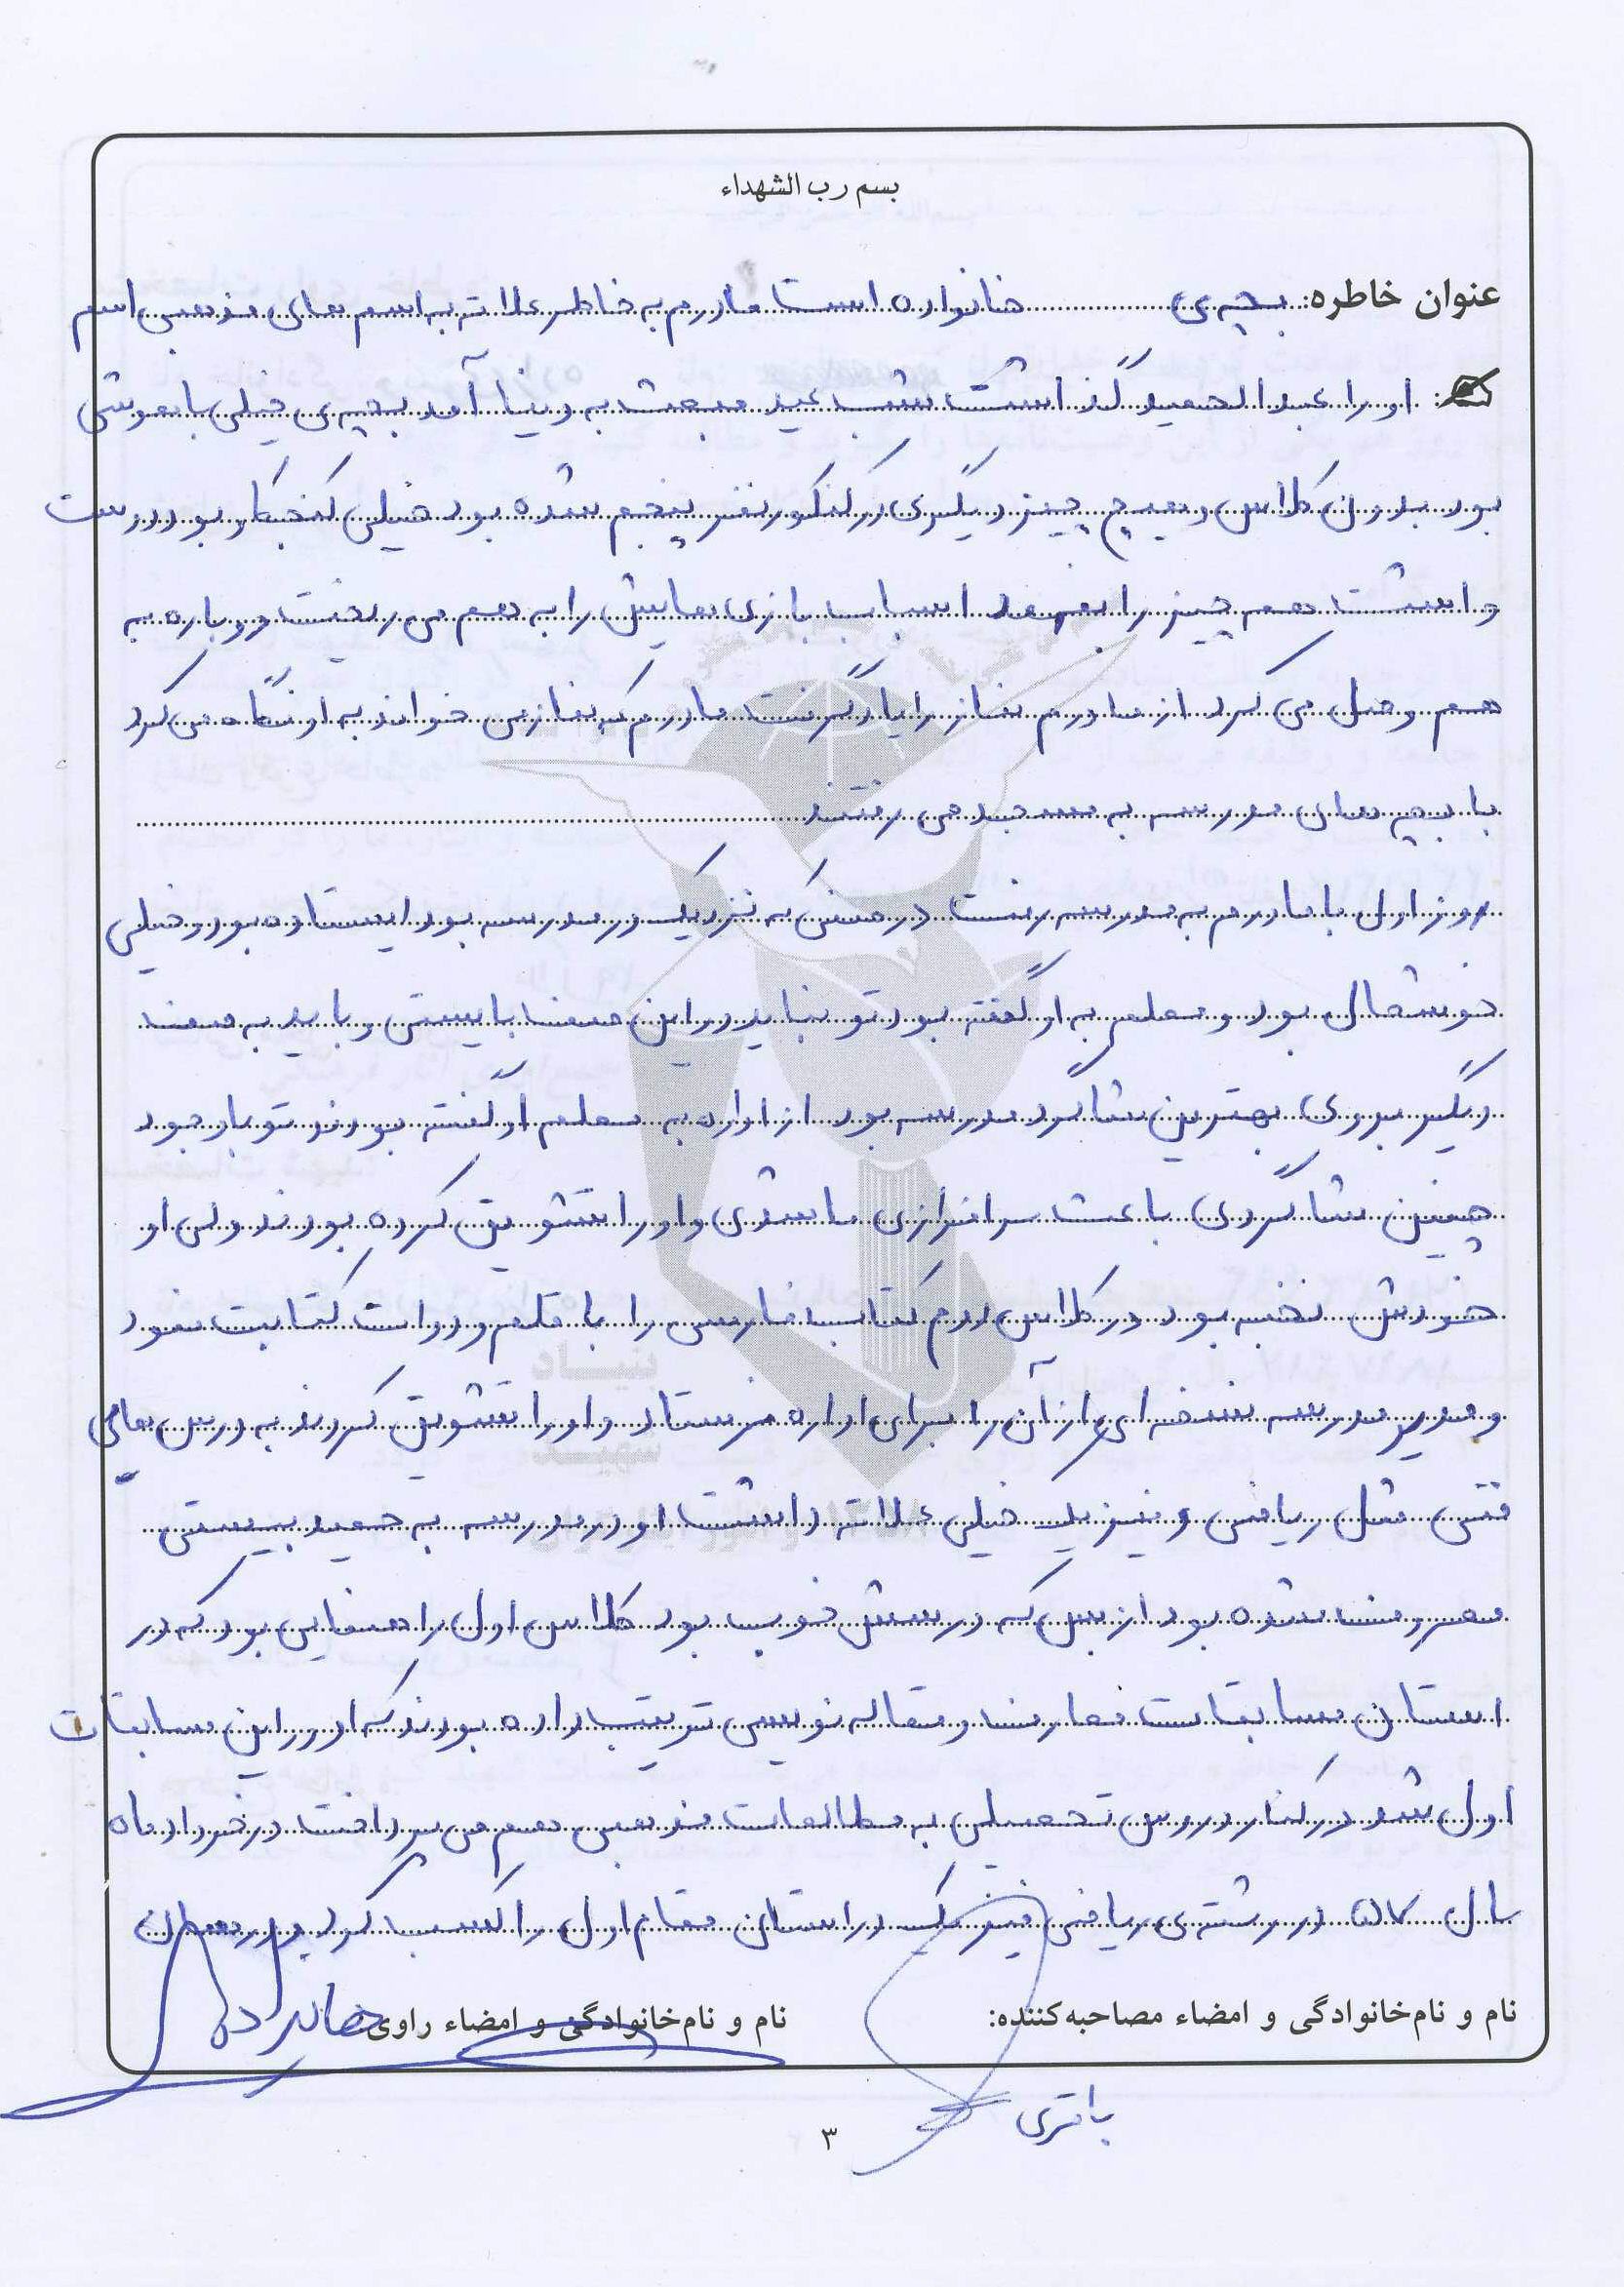 بسم رب الشهداء
عنوان خاطره: بچه‌ی خانواده است مادرم به خاطر علاقه به اسم های مذهبی اسم
او را عبدالحمید گذاشت شب عید مبعث به دنیا آمد بچه‌ی خیلی باهوشی
بود بدون کلاس و هیچ چیز دیگری در کنکور نفر پنجم شده بود خیلی کنجکاو بود دوست
داشت همه چیز را بفهمد اسباب بازی هایش را به هم می ریخت دوباره به
هم وصل می کرد از مادرم نماز را یاد گرفت مادرم که نماز می خواند به او نگاه می کرد
با بچه های مدرسه به مسجد می رفتند
روز اول با مادرم به مدرسه رفت در صفی که نزدیک در مدرسه بود ایستاده بود و خیلی
خوشحال بود و معلم به او گفته بود تو نباید در این صف بایستی و باید به صف
دیگر بروی بهترین شاگرد مدرسه بود از اداره به معلم او گفته بودند تو با وجود
چنین شاگردی باعث سرافرازی ما شدی و او را تشویق کرده بودند ولی او
خودش نخبه بود در کلاس دوم کتاب فارسی را با قلم و دوات کتابت نمود
و مدیر مدرسه نسخه ای از آن را برای اداره فرستاد و او را تشویق کردند به درس هایی
فنی مثل ریاضی و فیزیک خیلی علاقه داشت او در مدرسه به حمید بیستی
معروف شده بود از بس که درسش خوب بود کلاس اول راهنمایی بود که در
استان مسابقات معارف و مقاله نویسی ترتیب داده بودند که او در این مسابقات
اول شد در کنار دروس تحصیلی به مطالعات مذهبی هم می پرداخت در خرداد ماه
سال ۵۷ در رشته‌ی ریاضی فیزیک در استان مقام اول را کسب کرد و در همان
نام و نام‌خانوادگی و امضاء مصاحبه‌کننده: نام و نام‌خانوادگی و امضاء راوی:
۳